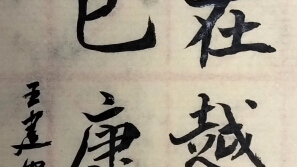 在越
已康
王建